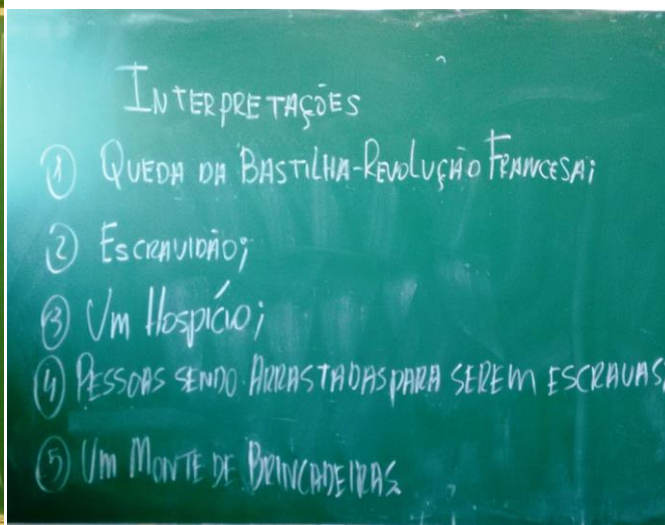 INTERPRETAÇÕES
① QUEDA DA BASTILHA-REVOLUÇÃO FRANCESA;
② ESCRAVIDÃO;
③ UM HOSPÍCIO;
④ PESSOAS SENDO ARRASTADAS PARA SEREM ESCRAVAS;
⑤ UM MONTE DE BRINCADEIRAS.